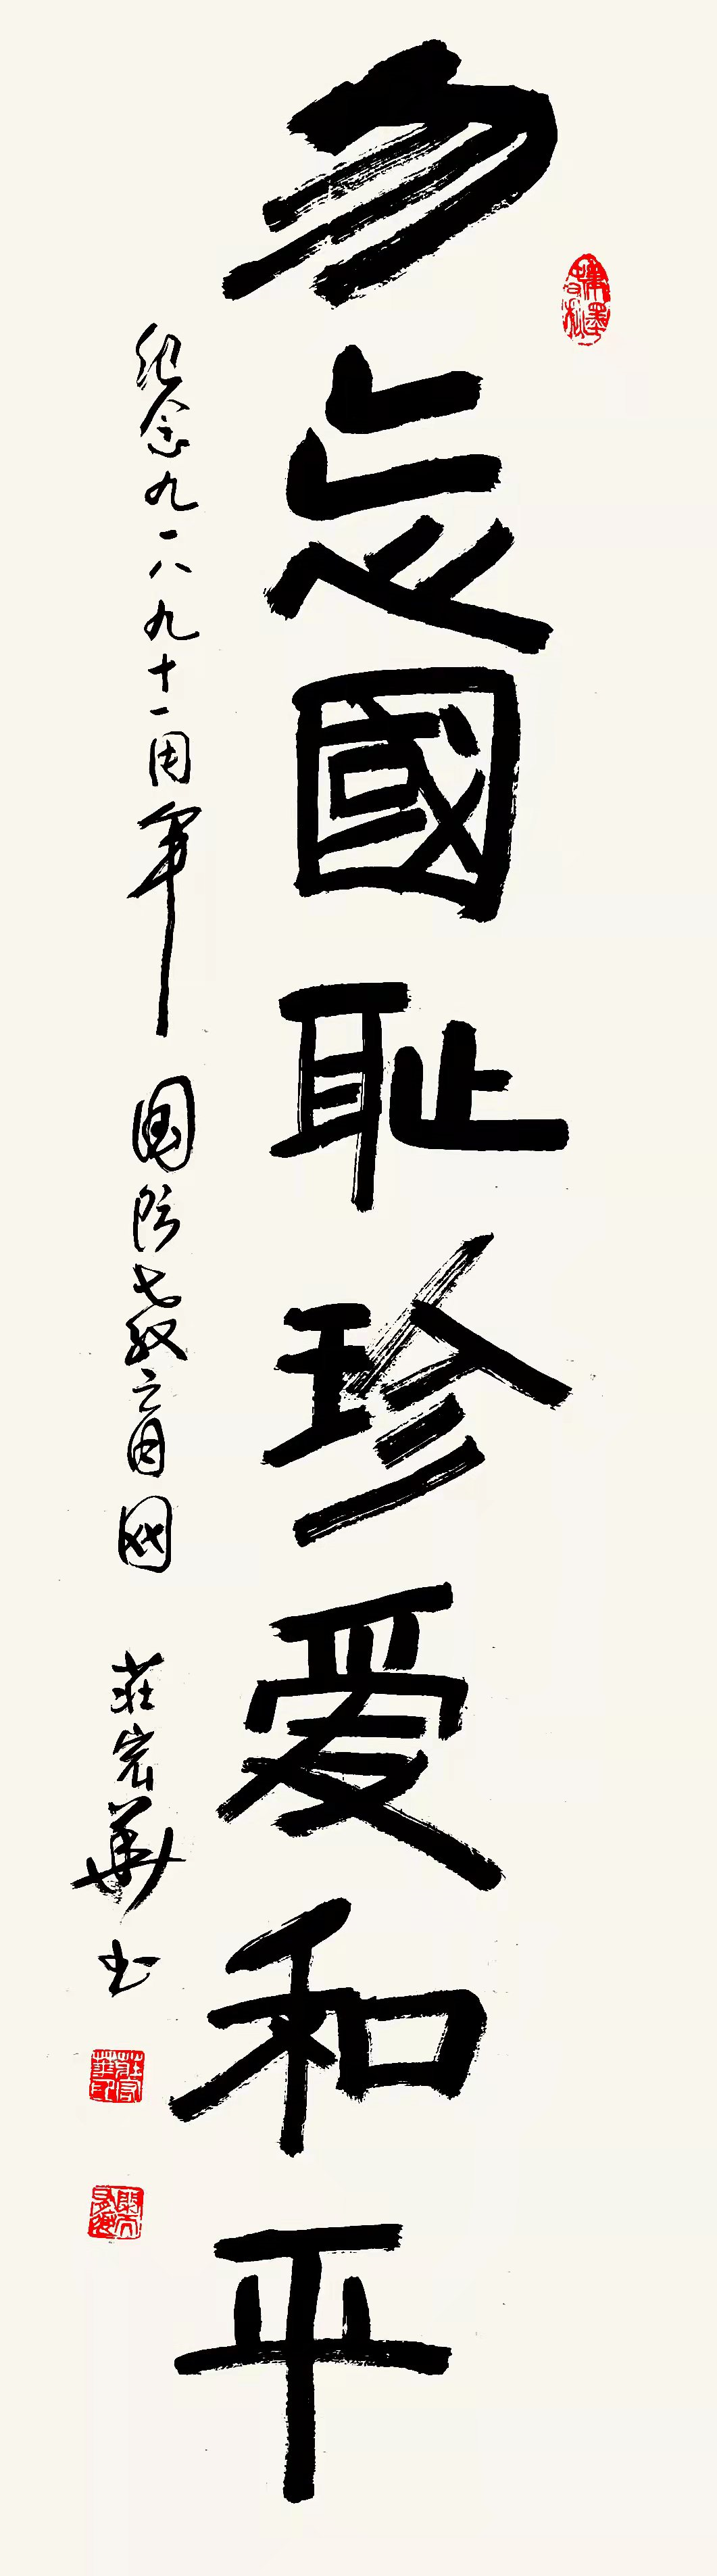 勿忘國耻珍爱和平
纪念九一八九十一周年 国防教育网 莊宏華书